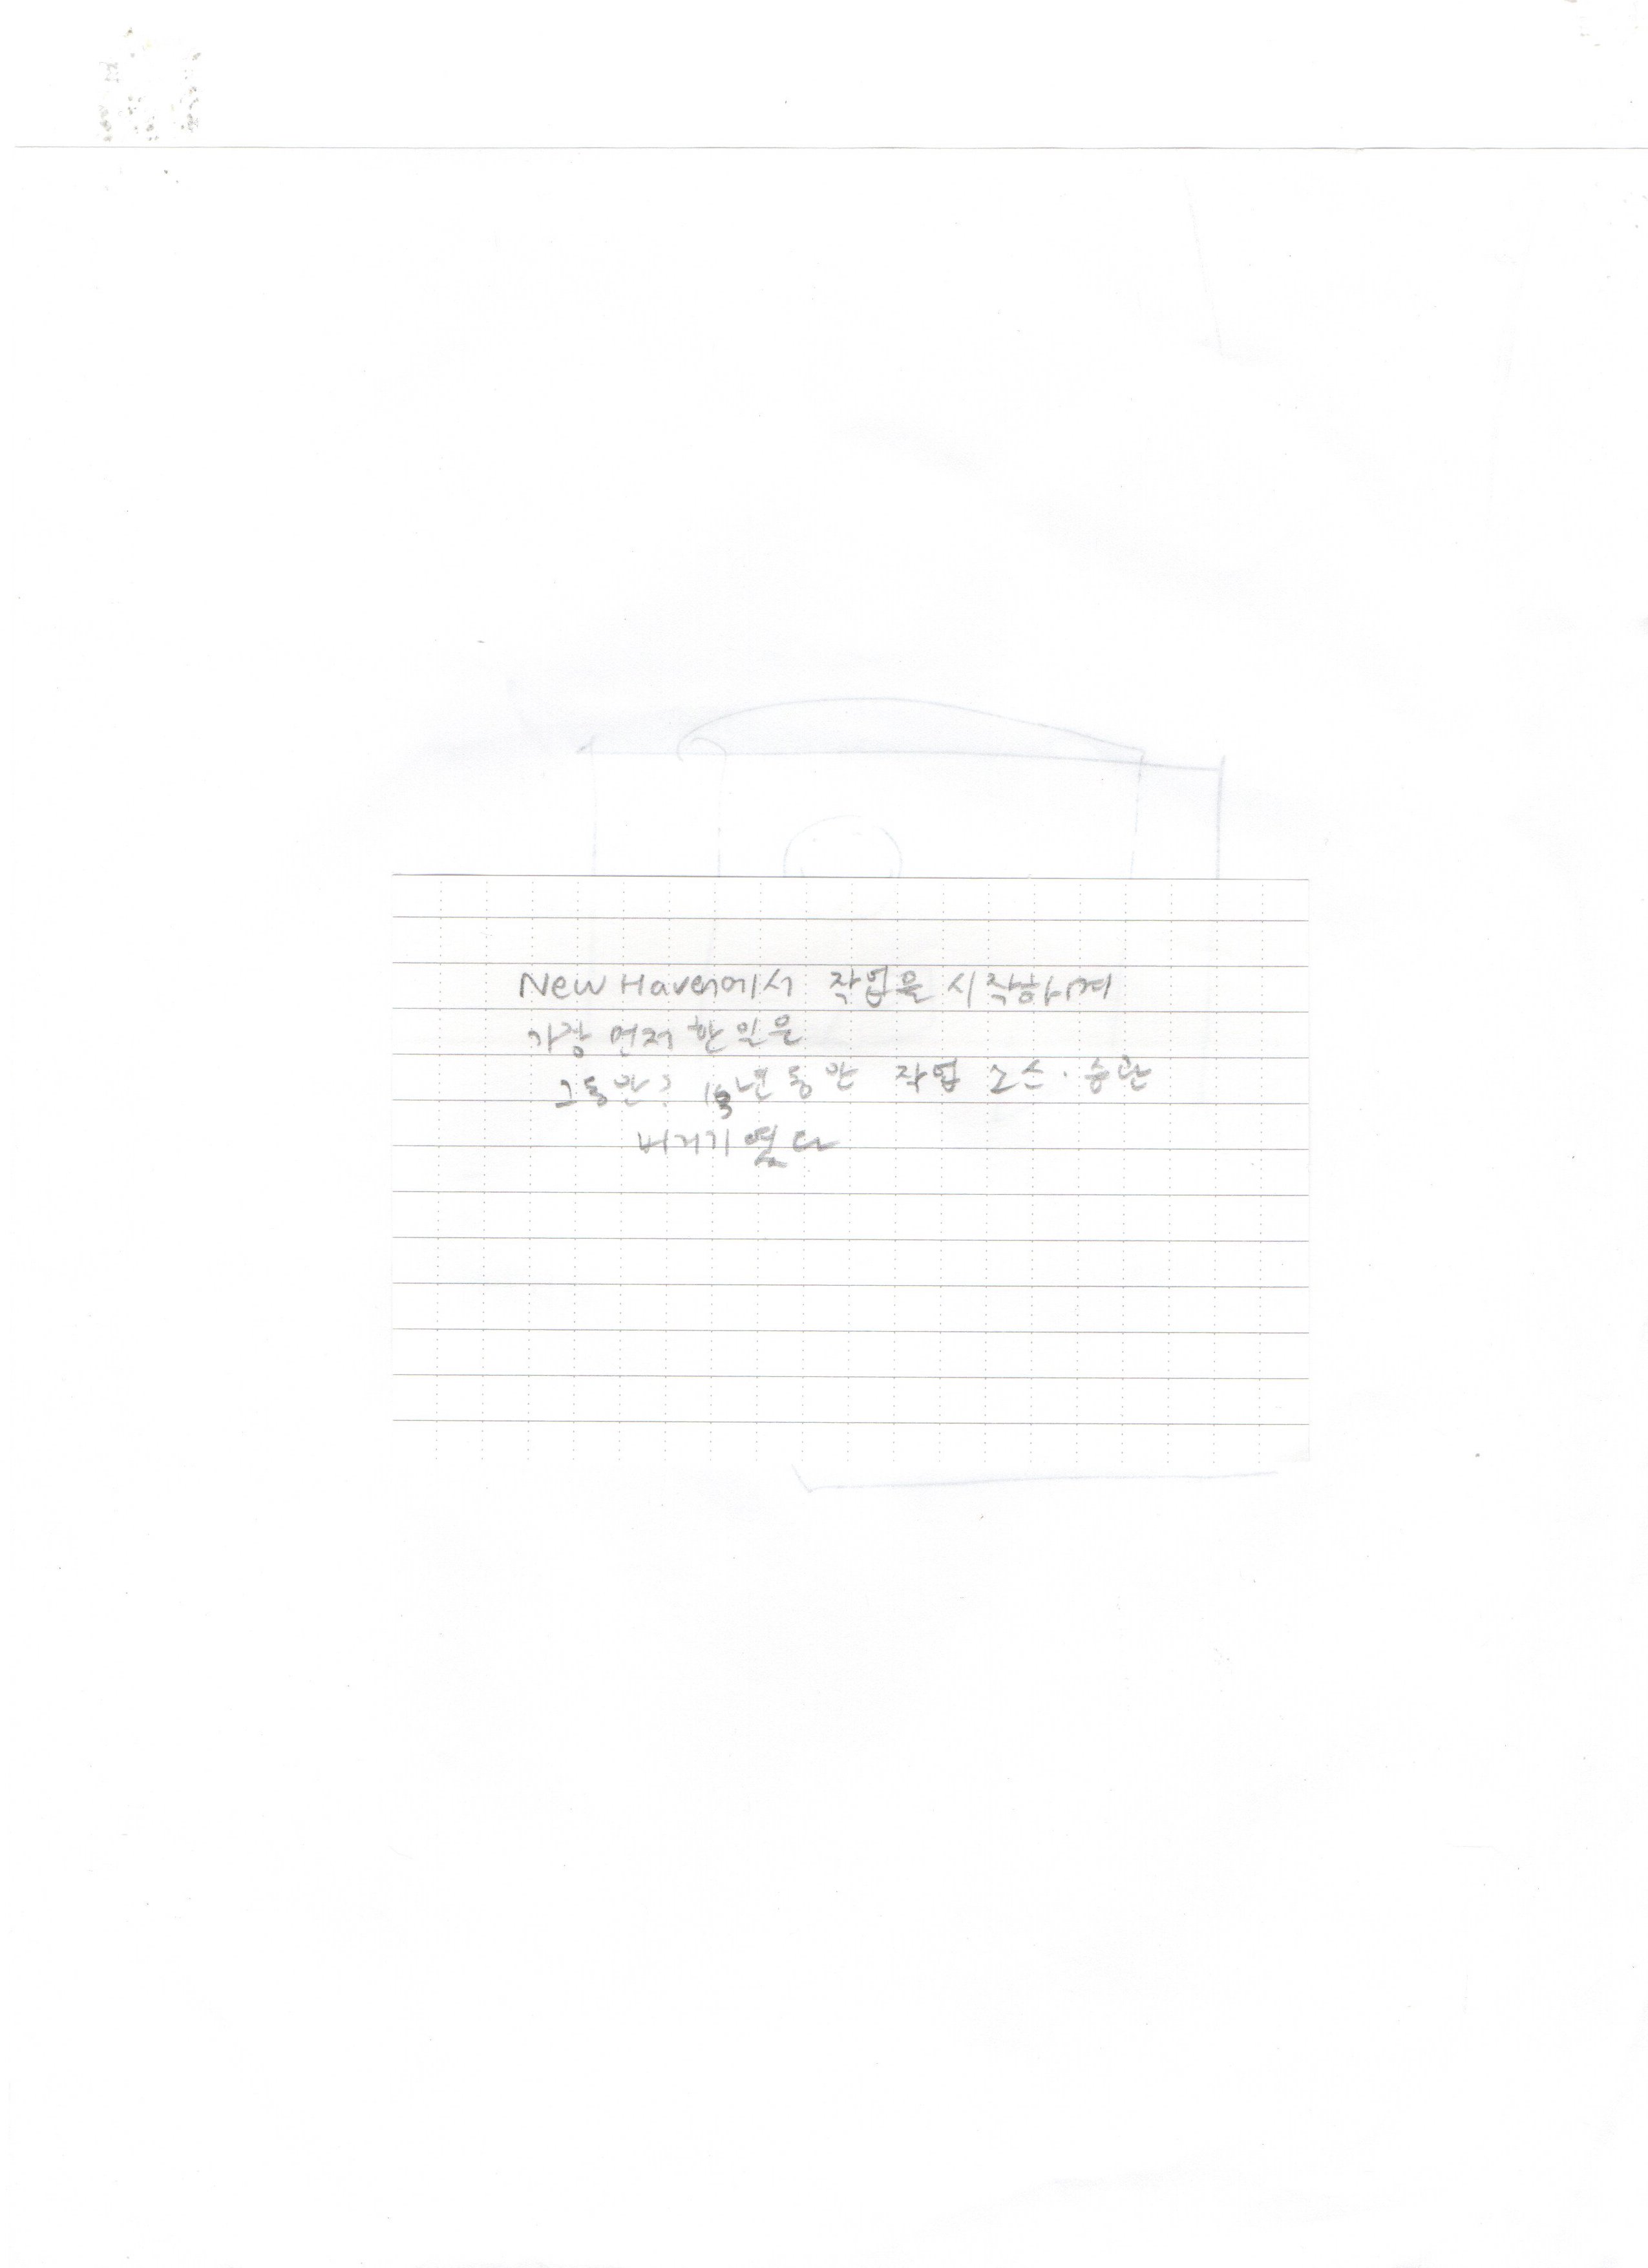 New Haven에서 작업을 시작하며
가장 먼저 한 일은
그동안? 년 동안 작업 소스. 습관
버리기 였다